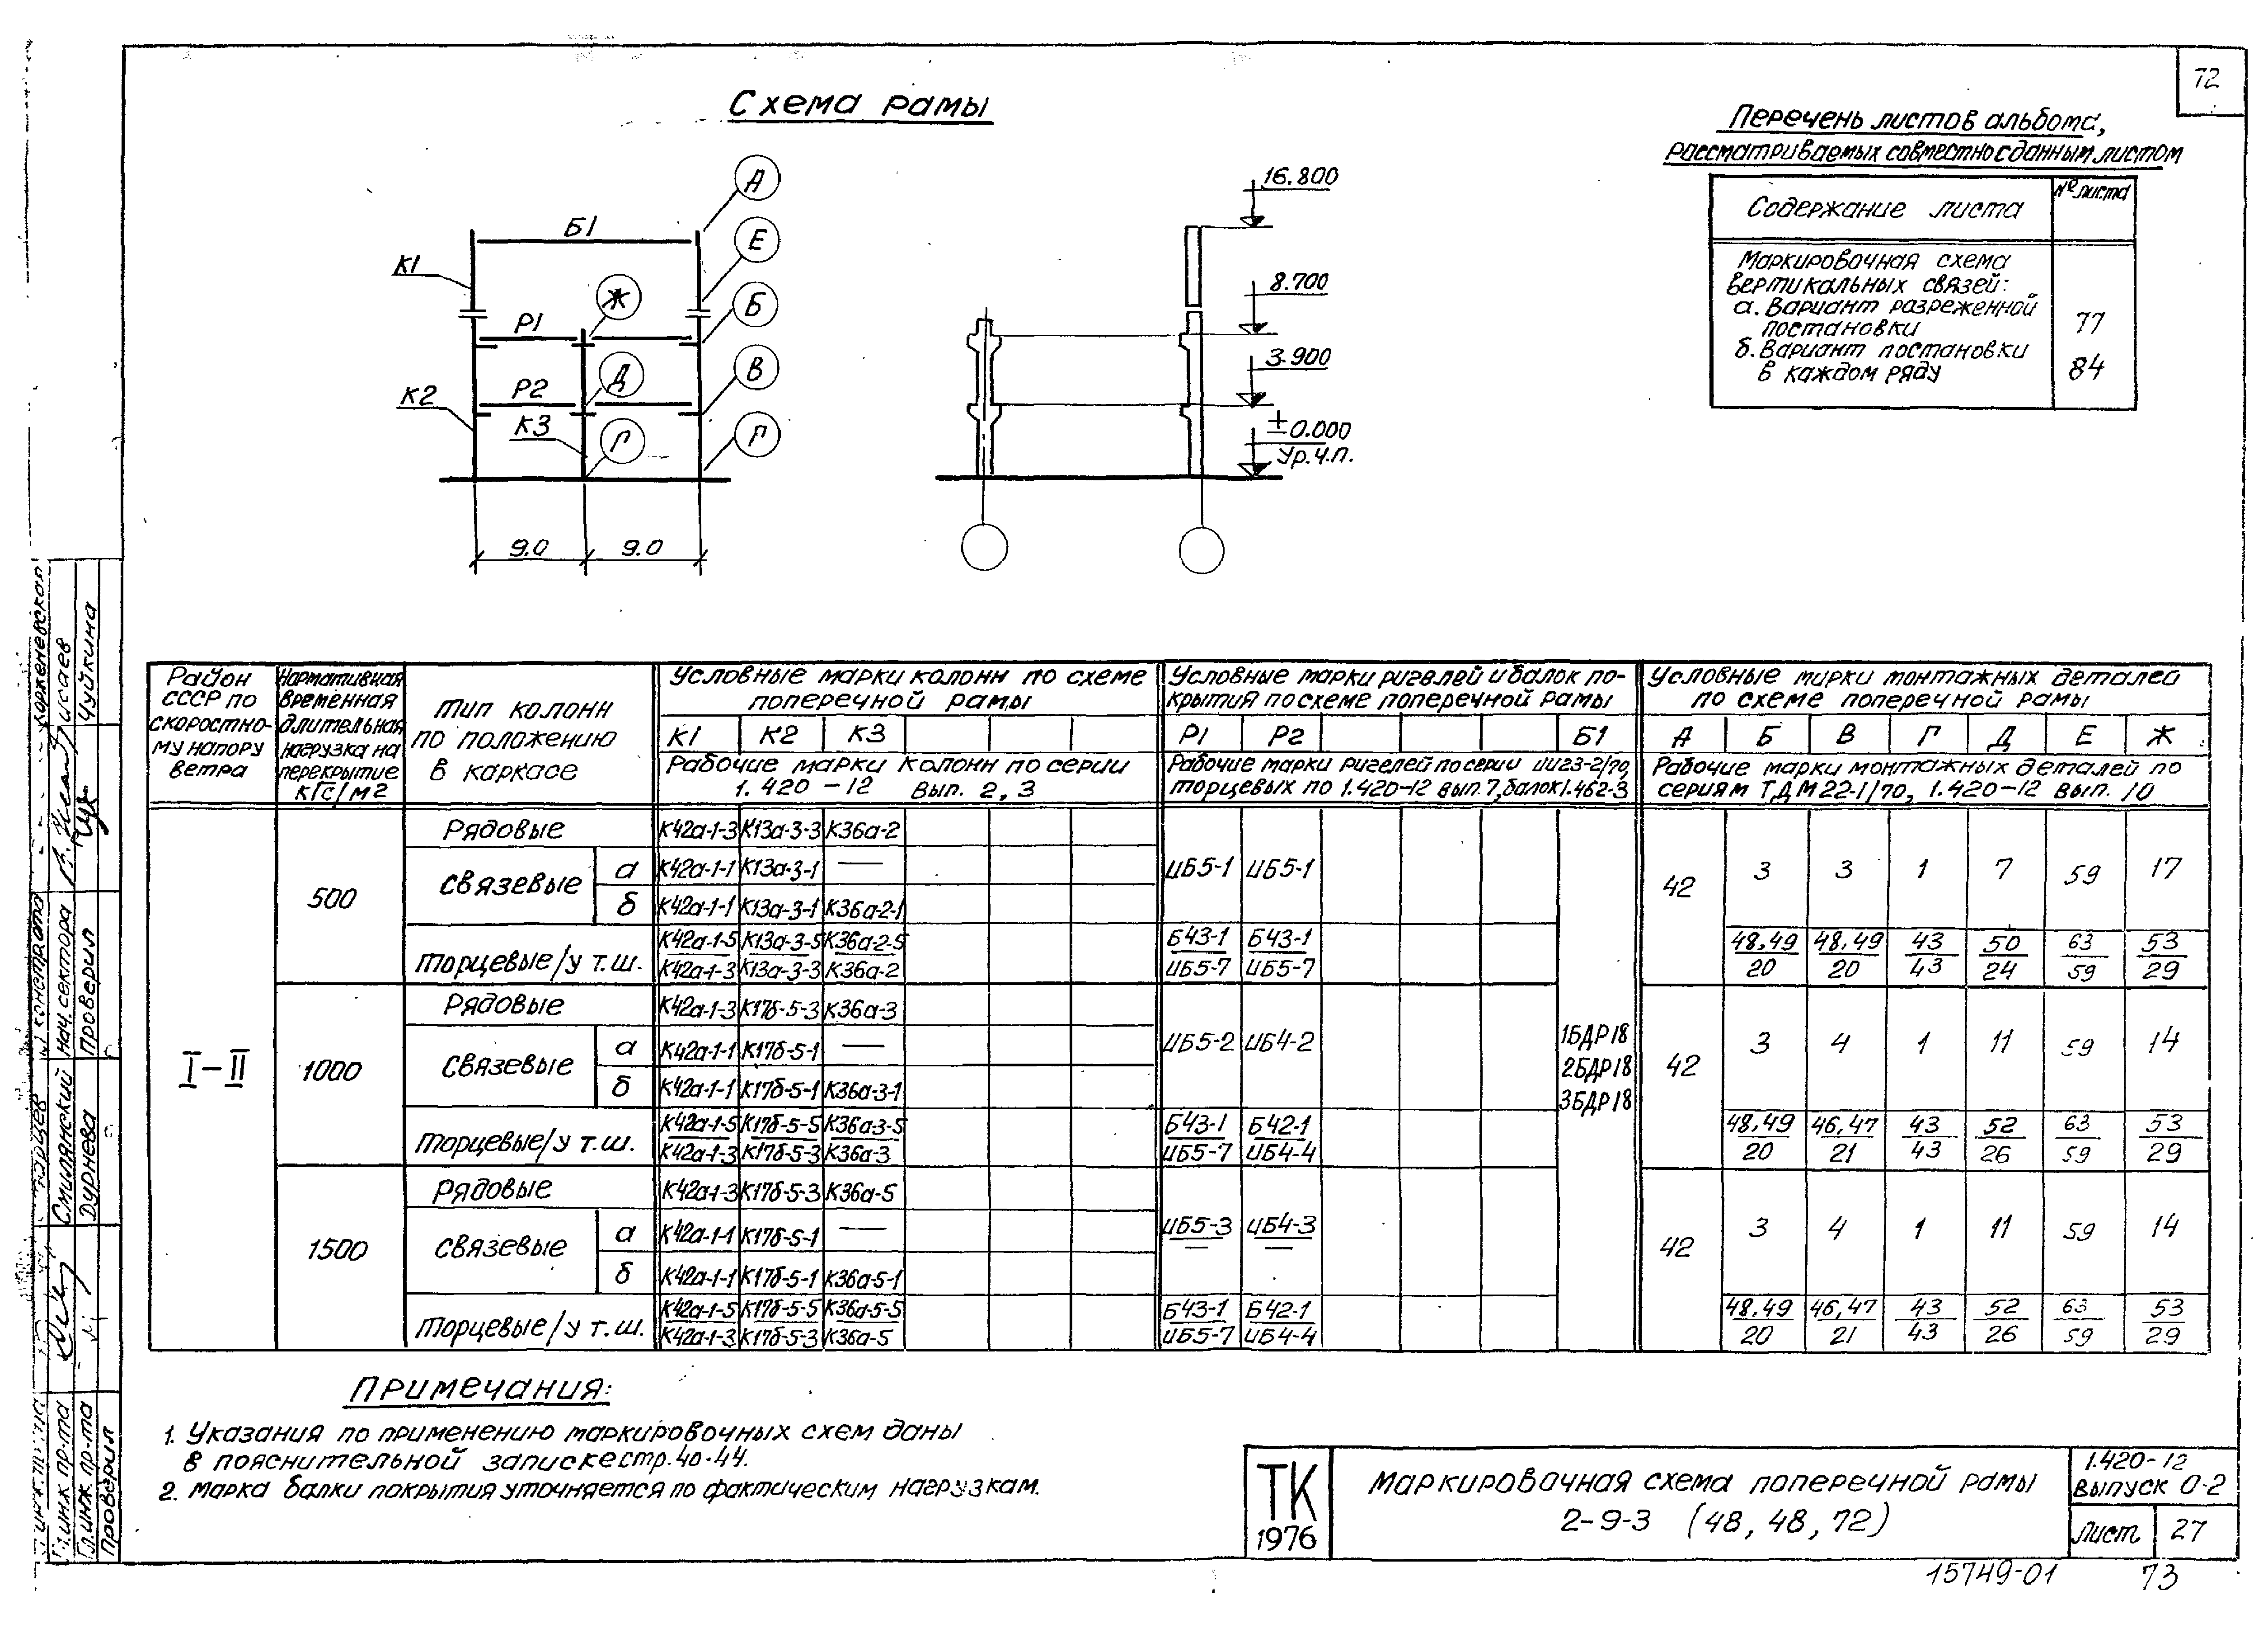 72
Схема рамы
Перечень листов альбома,
рассматриваемых совместно с данным листом
Содержание листа
№ листа
Маркировочная схема
вертикальных связей:
а. Вариант разреженной
постановки
77
б. Вариант постановки
в каждом ряду
84
А
Е
Б
В
Г
Ж
Д
Г
Б1
К1
Р1
К2
Р2
К3
9.0 9.0
16.800
8.700
3.900
±0.000
Ур.ч.п.
Район СССР по скоростно-му напору ветра
Нормативная временная длительная нагрузка на перекрытие кгс/м2
Тип колонн по положению в каркасе
Условные марки колонн по схеме поперечной рамы
Условные марки ригелей и балок по-крытия по схеме поперечной рамы
Условные марки монтажных деталей по схеме поперечной рамы
К1 К2 К3 Р1 Р2 Б1 А Б В Г Д Е Ж
Рабочие марки колонн по серии 1.420-12 вып. 2, 3
Рабочие марки ригелей по серии ИИ23-2/70, торцевых по 1.420-12 вып. 7, балок 1.462-3
Рабочие марки монтажных деталей по сериям ТДМ22-1/70, 1.420-12 вып. 10
I-II
500
Рядовые К42а-1-3 К13а-3-3 К36а-2
Связевые а К42а-1-1 К13а-3-1 — ИБ5-1 ИБ5-1 42 3 3 1 7 59 17
б К42а-1-1 К13а-3-1 К36а-2-1
Торцевые/у т.ш. К42а-1-5 К13а-3-5 К36а-2-5 Б43-1 Б43-1 48,49 48,49 43 50 63 53
К42а-1-3 К13а-3-3 К36а-2 ИБ5-7 ИБ5-7 20 20 43 24 59 29
1000
Рядовые К42а-1-3 К17б-5-3 К36а-3
Связевые а К42а-1-1 К17б-5-1 — ИБ5-2 ИБ4-2 42 3 4 1 11 59 14
б К42а-1-1 К17б-5-1 К36а-3-1
1БДР18
2БДР18
3БДР18
Торцевые/у т.ш. К42а-1-5 К17б-5-5 К36а3-5 Б43-1 Б42-1 48,49 46,47 43 52 63 53
К42а-1-3 К17б-5-3 К36а-3 ИБ5-7 ИБ4-4 20 21 43 26 59 29
1500
Рядовые К42а1-3 К17б-5-3 К36а-5
Связевые а К42а-1-1 К17б-5-1 — ИБ5-3 ИБ4-3 42 3 4 1 11 59 14
— —
б К42а-1-1 К17б-5-1 К36а-5-1
Торцевые/у т.ш. К42а-1-5 К17б-5-5 К36а-5-5 Б43-1 Б42-1 48,49 46,47 43 52 63 53
К42а-1-3 К17б-5-3 К36а-5 ИБ5-7 ИБ4-4 20 21 43 26 59 29
Примечания:
1. Указания по применению маркировочных схем даны
в пояснительной записке стр. 40-44.
2. Марка балки покрытия уточняется по фактическим нагрузкам.
ТК
1976
Маркировочная схема поперечной рамы
2-9-3 (48, 48, 72)
1.420-12
Выпуск 0-2
Лист 27
15749-01 73
Нач. сектора
Проверил
Чуйкина
Гл. инж. пр-та Смилянский
Гл. инж. пр-та Дурнева
Проверил